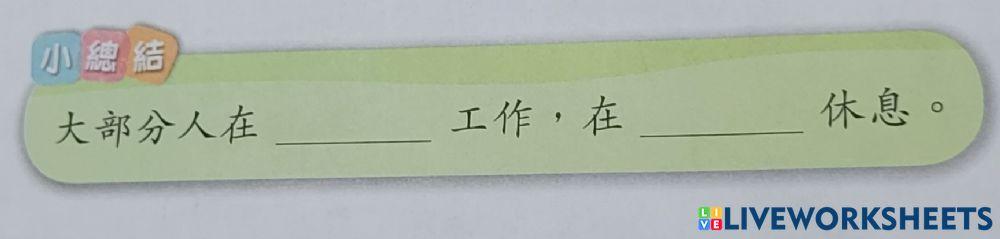 小總結
大部分人在 ________ 工作，在 ________ 休息。
LIVE LIVEWORKSHEETS